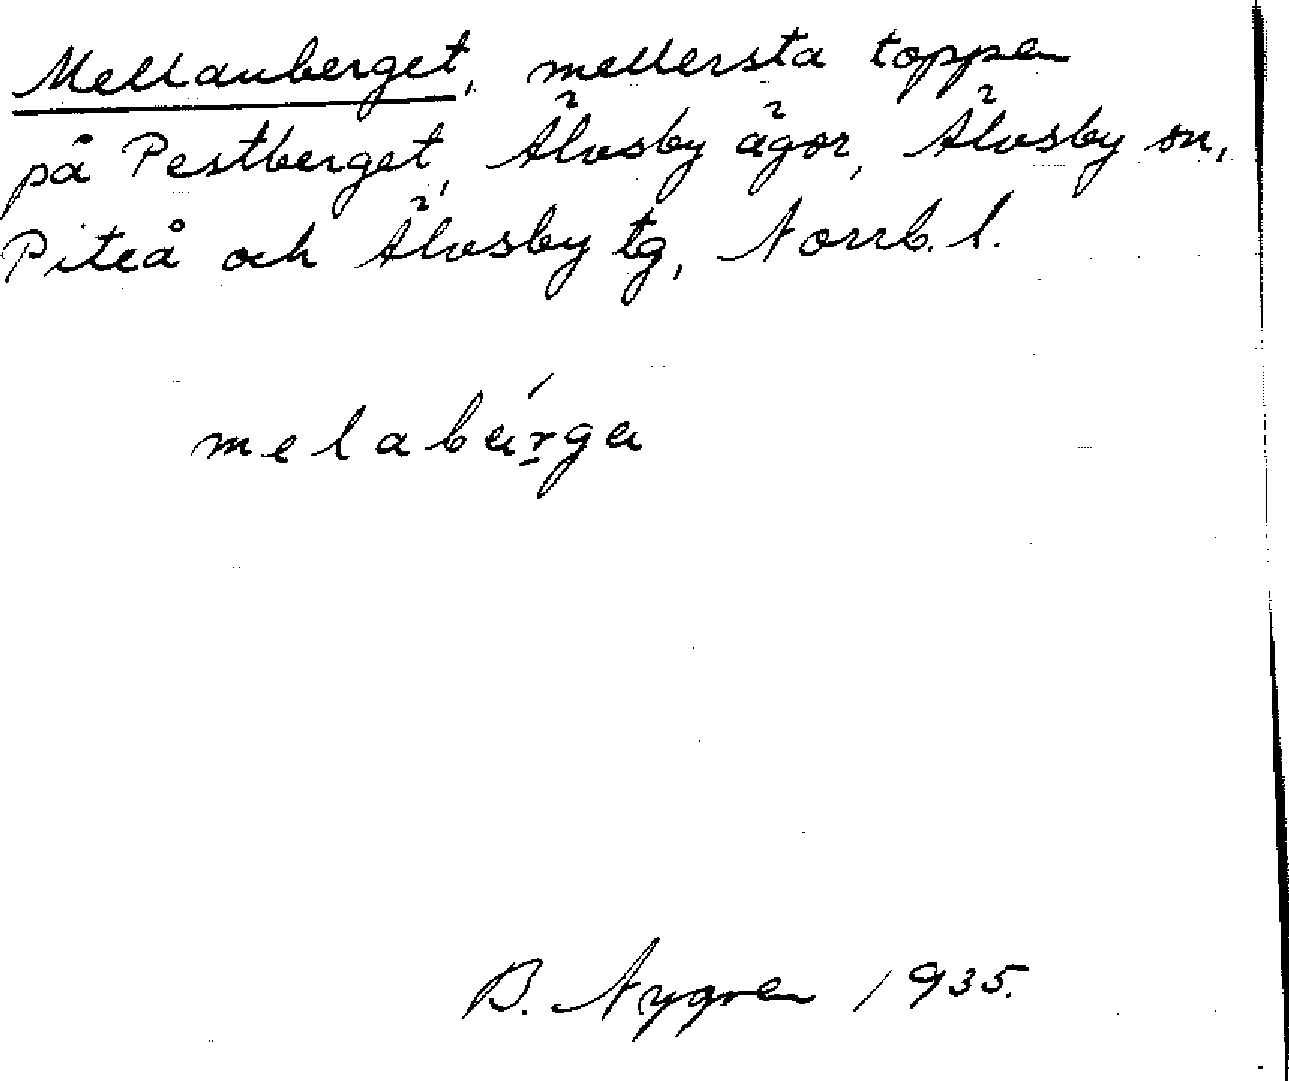 Mellanberget, mellersta toppen
på Pestberget, Älvsby ägor, Älvsby sn,
Piteå och Älvsby tg, Norrb. l.
melabárga
B. Nygren 1935.